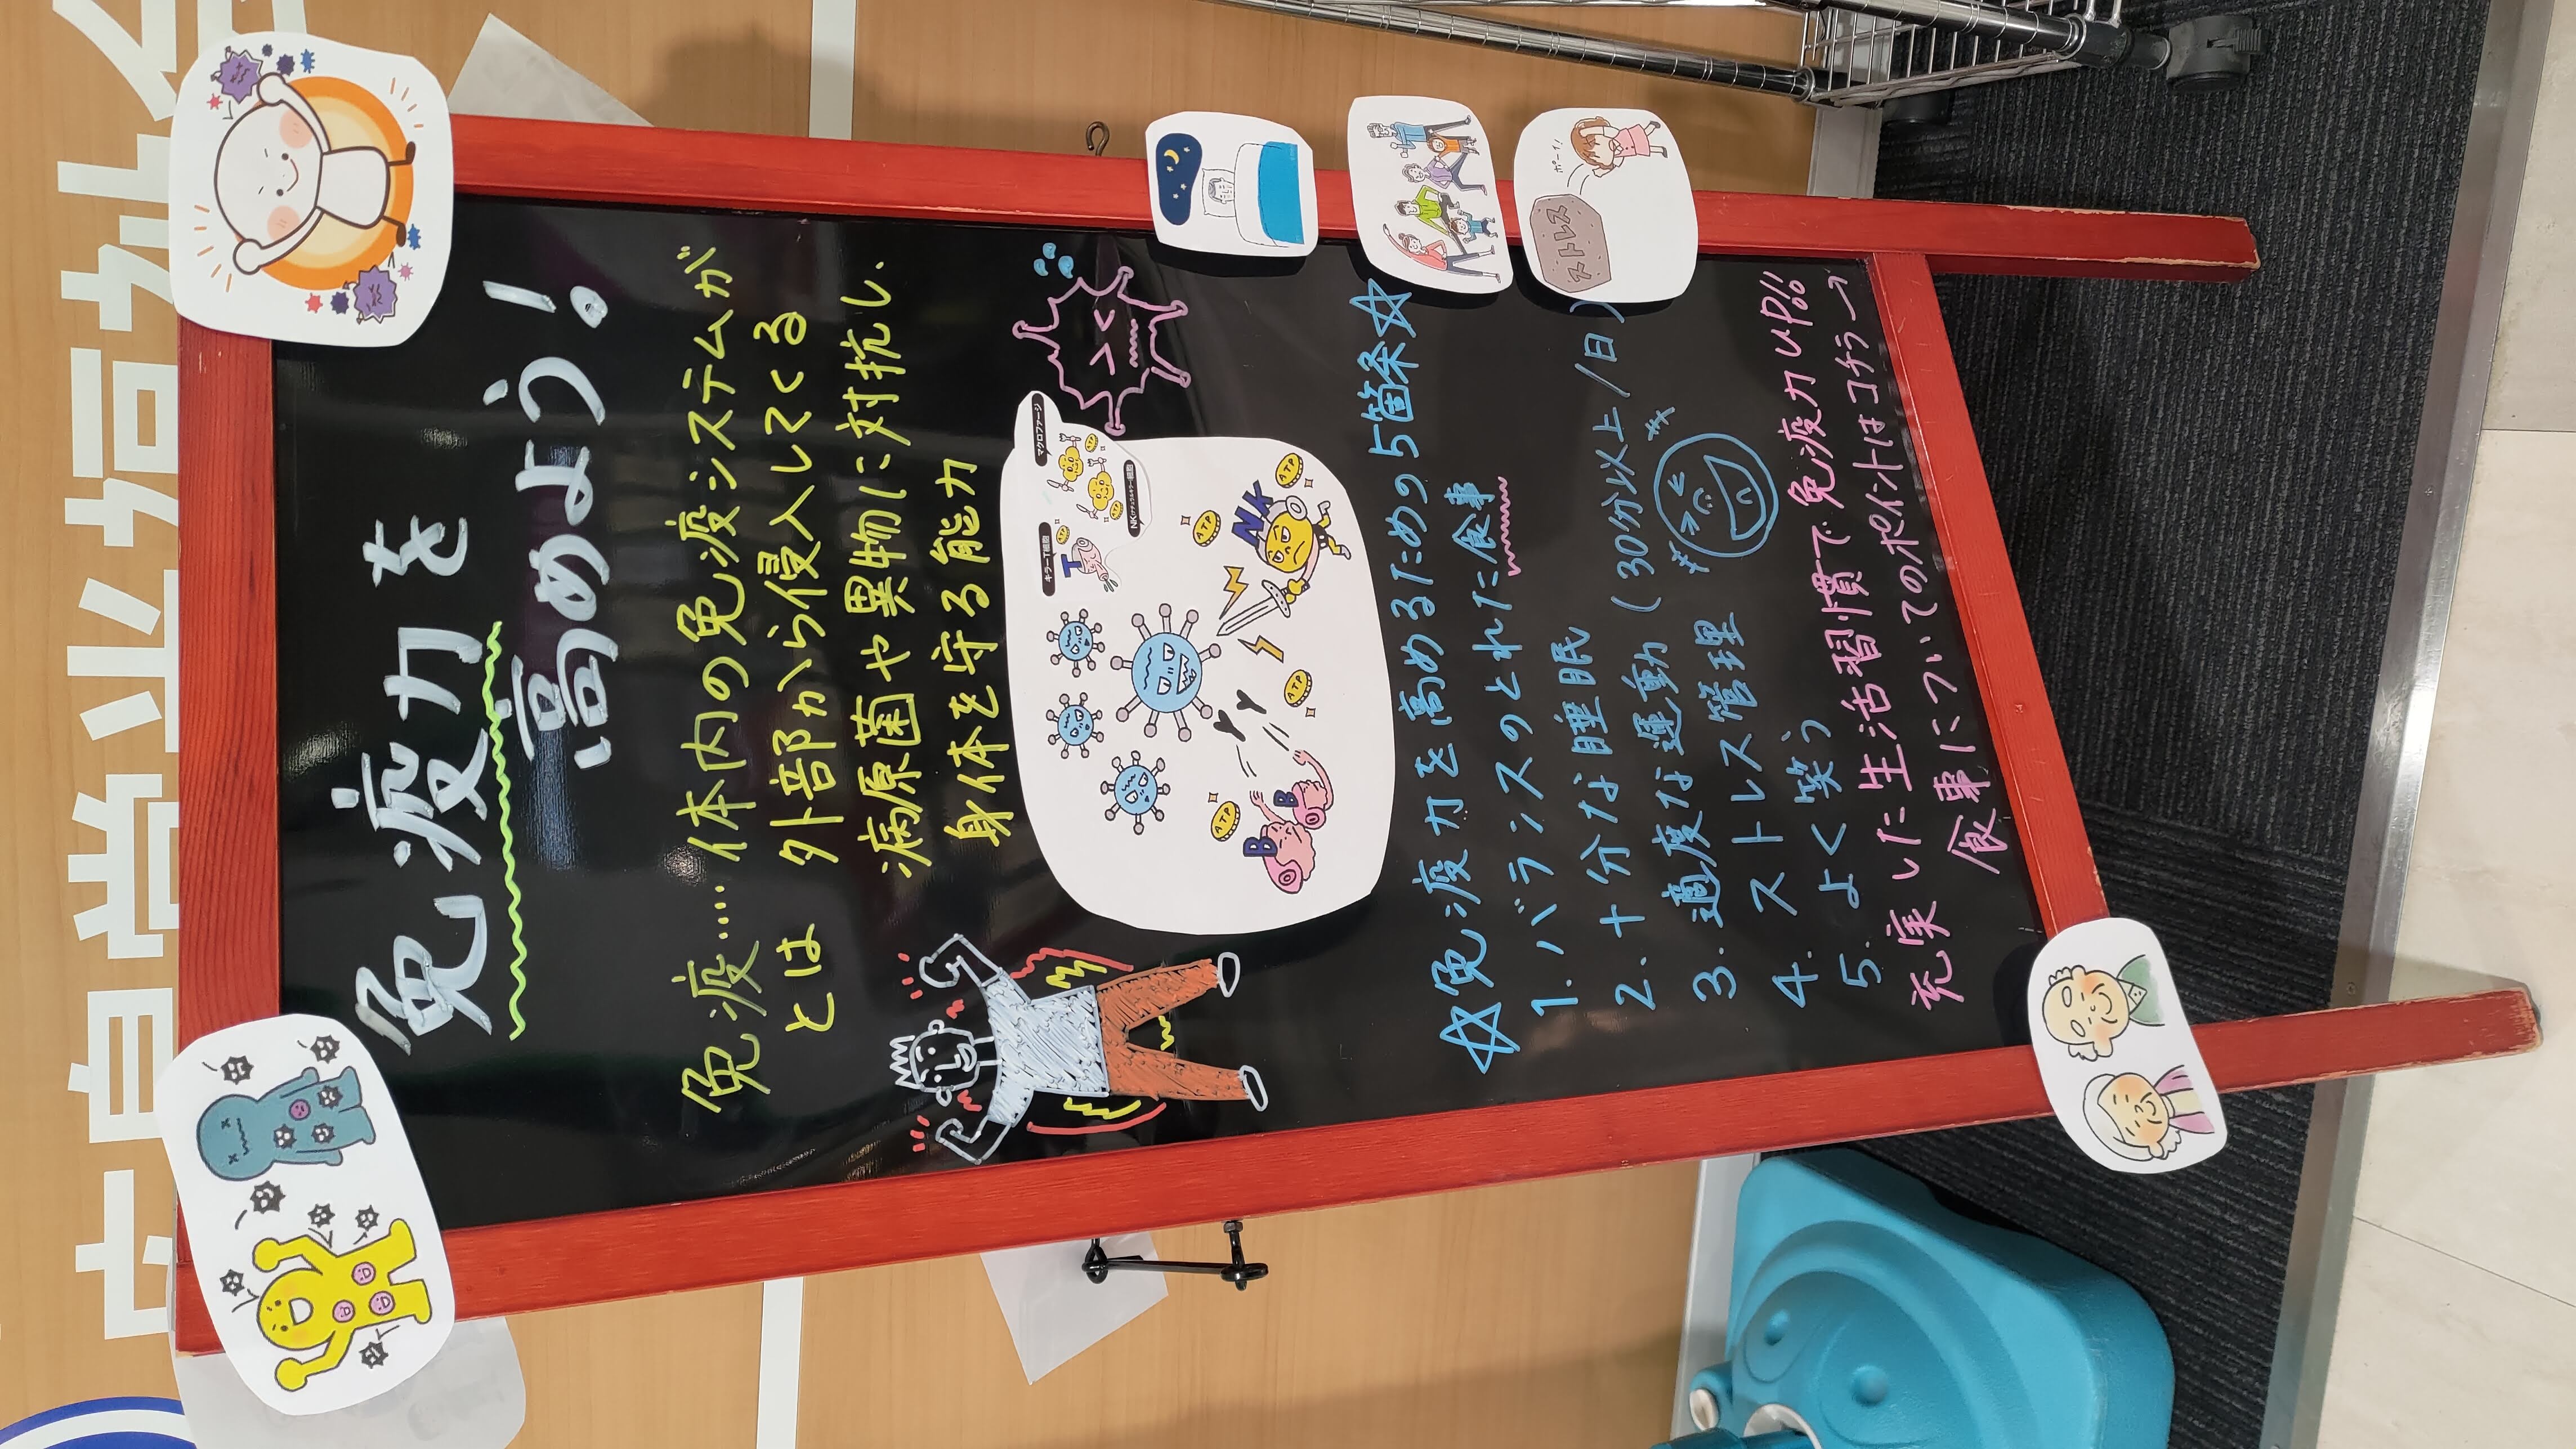 免疫力を
高めよう!
免疫……体内の免疫システムが
とは 外部から侵入してくる
病原菌や異物に対抗し、
身体を守る能力
マクロファージ
NK(ナチュラルキラー)細胞
キラーT細胞
T
ATP
ATP
ATP
ATP
NK
ATP
ATP
ATP
ATP
B
B
☆免疫力を高めるための5箇条☆
1. バランスのとれた食事
2. 十分な睡眠
3. 適度な運動 (30分以上/日)
4. ストレス管理
5. よく笑う
ポーイ!
ストレス
充実した生活習慣で免疫力UP!!
食事についてのポイントはコチラ→